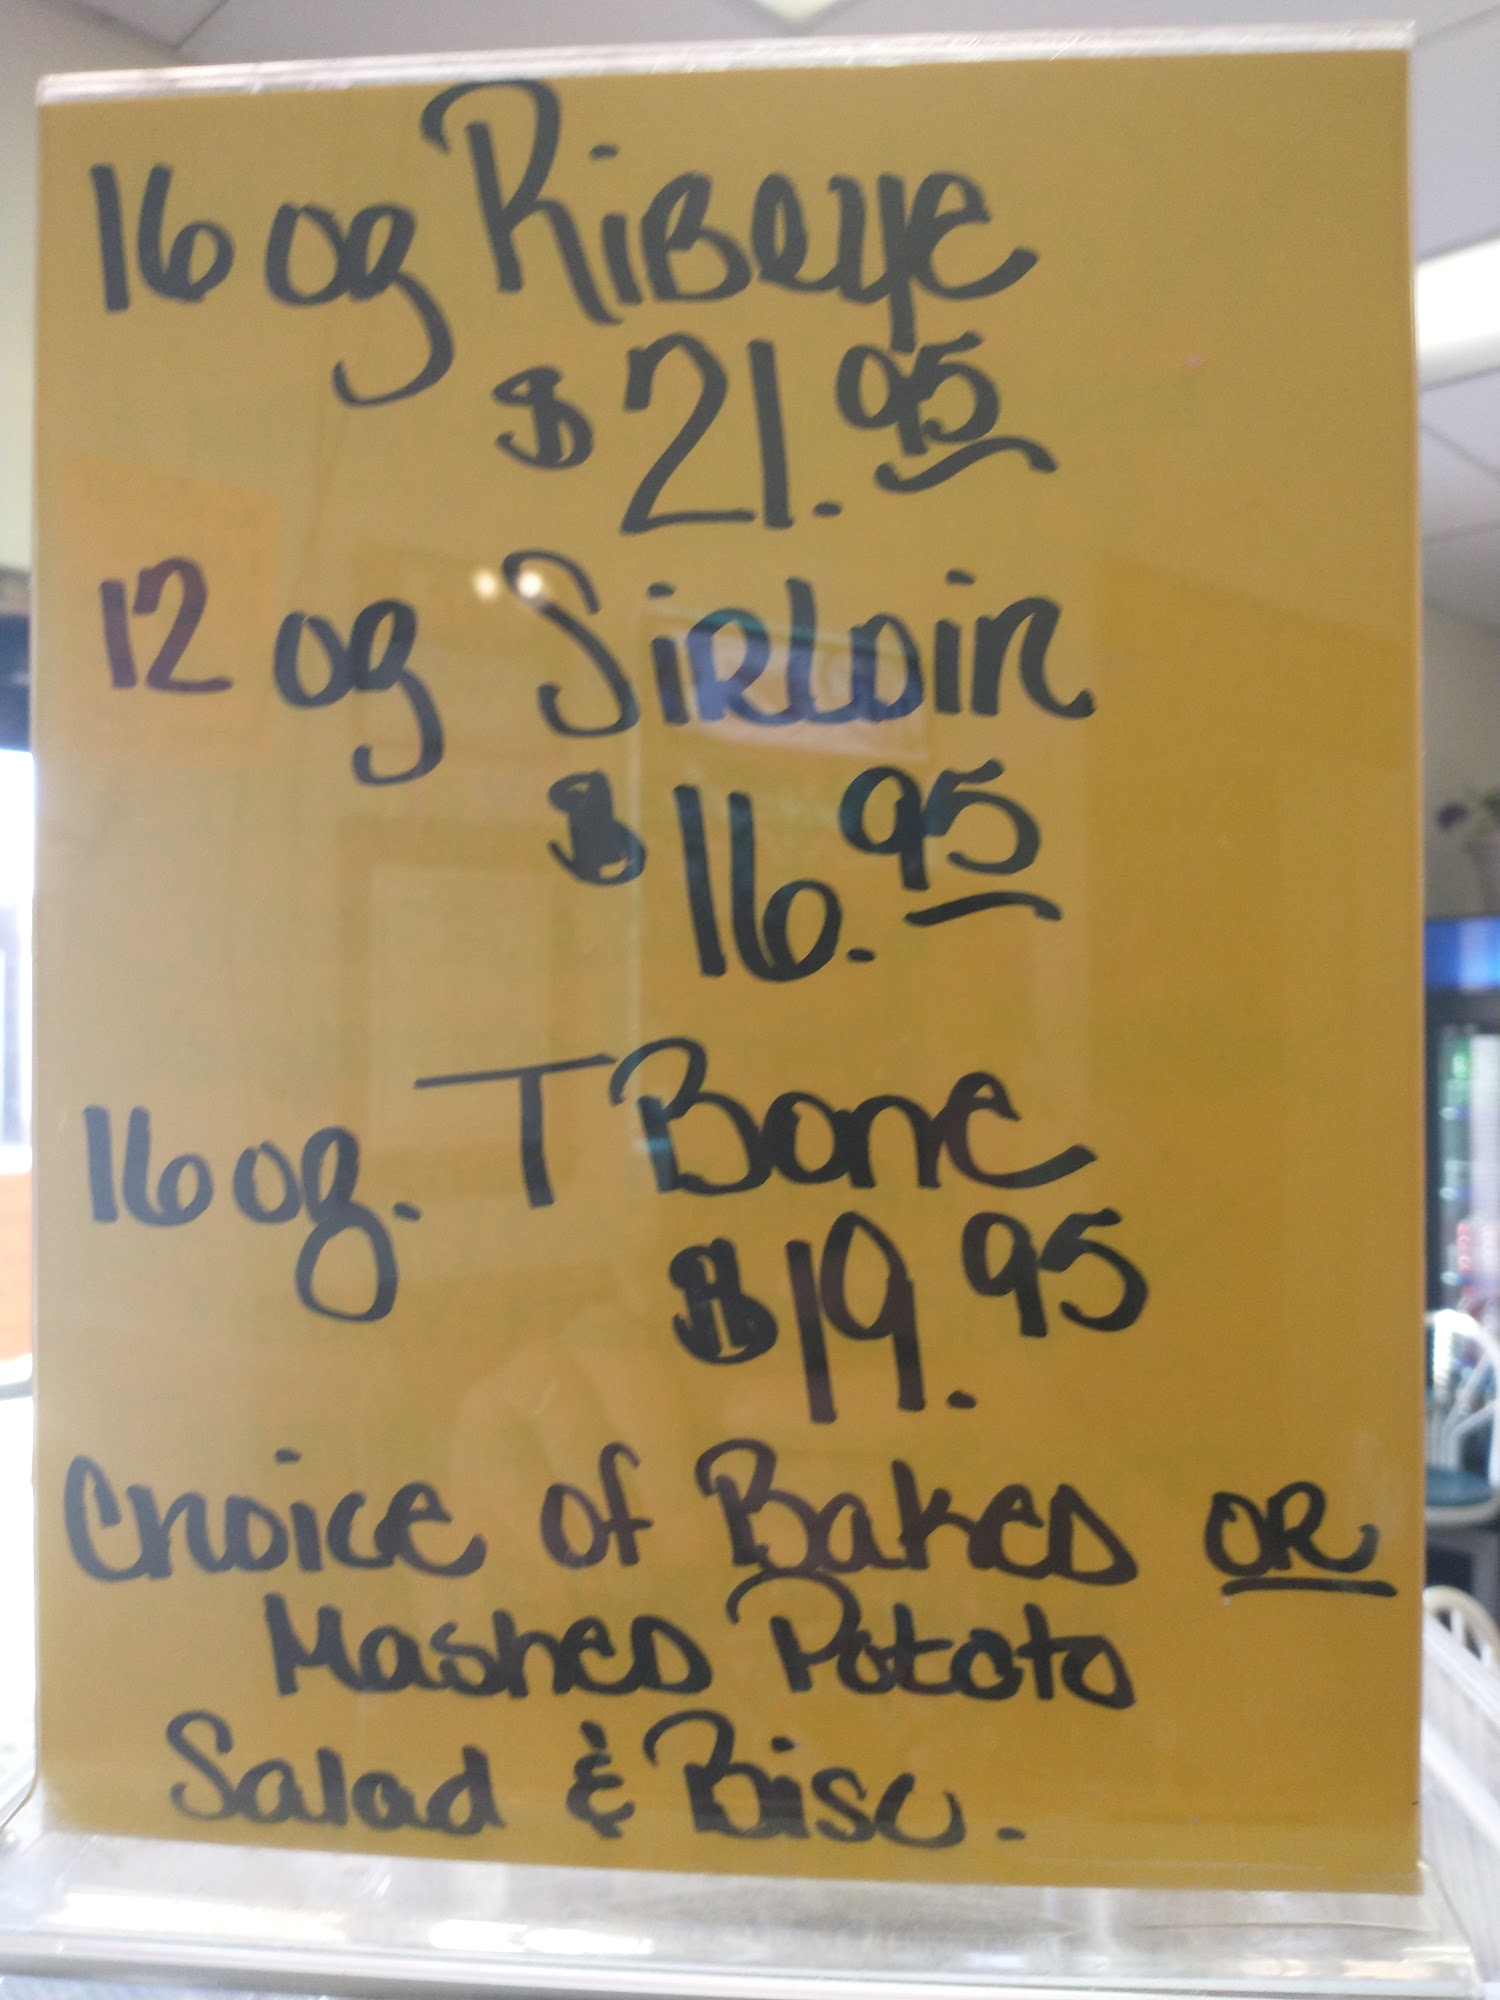 16 oz Ribeye
$21.95
12 oz Sirloin
$16.95
16 oz. T Bone
$19.95
Choice of Baked OR
Mashed Potato
Salad & Bisc.